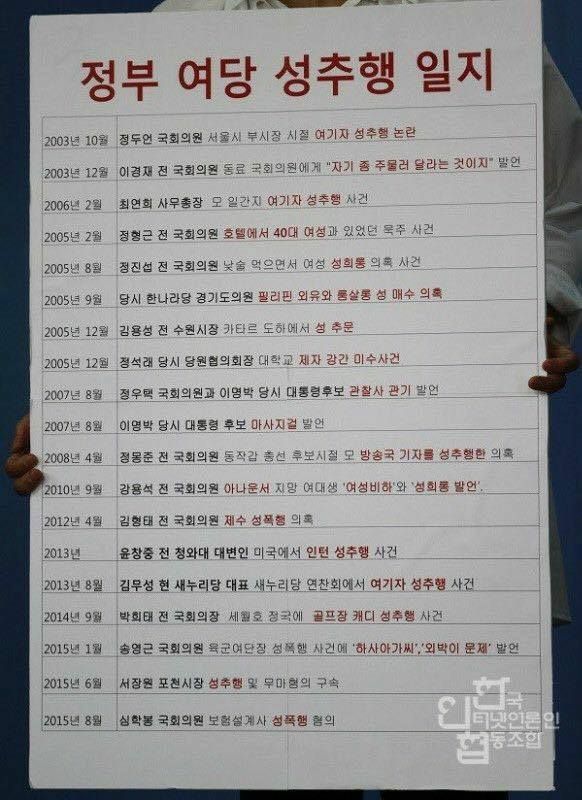 정부 여당 성추행 일지
2003년 10월 정두언 국회의원 서울시 부시장 시절 여기자 성추행 논란
2003년 12월 이경재 전 국회의원 동료 국회의원에게 "자기 좀 주물러 달라는 것이지" 발언
2006년 2월 최연희 사무총장 모 일간지 여기자 성추행 사건
2005년 2월 정형근 전 국회의원 호텔에서 40대 여성과 있었던 묵주 사건
2005년 8월 정진섭 전 국회의원 낮술 먹으면서 여성 성희롱 의혹 사건
2005년 9월 당시 한나라당 경기도의원 필리핀 외유와 룸살롱 성 매수 의혹
2005년 12월 김용성 전 수원시장 카타르 도하에서 성 추문
2005년 12월 정석래 당시 당원협의회장 대학교 제자 강간 미수사건
2007년 8월 정우택 국회의원과 이명박 당시 대통령후보 관찰사 관기 발언
2007년 8월 이명박 당시 대통령 후보 마사지걸 발언
2008년 4월 정몽준 전 국회의원 동작갑 총선 후보시절 모 방송국 기자를 성추행한 의혹
2010년 9월 강용석 전 국회의원 아나운서 지망 여대생 '여성비하'와 '성희롱 발언'.
2012년 4월 김형태 전 국회의원 제수 성폭행 의혹
2013년 윤창중 전 청와대 대변인 미국에서 인턴 성추행 사건
2013년 8월 김무성 현 새누리당 대표 새누리당 연찬회에서 여기자 성추행 사건
2014년 9월 박희태 전 국회의장 세월호 정국에 골프장 캐디 성추행 사건
2015년 1월 송영근 국회의원 육군여단장 성폭행 사건에 '하사아가씨','외박이 문제' 발언
2015년 6월 서장원 포천시장 성추행 및 무마혐의 구속
2015년 8월 심학봉 국회의원 보험설계사 성폭행 혐의
한국
인터넷언론인
협동조합